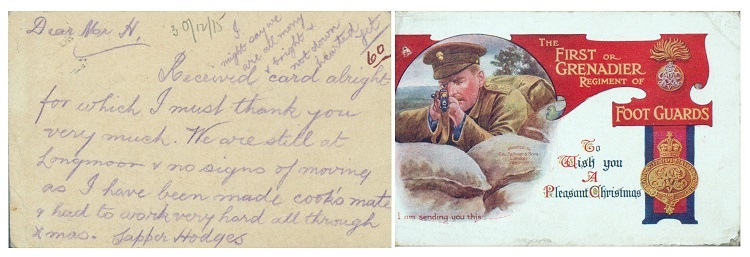 Dear Mr H.
30/12/15
I
might say we
are all merry
& bright
not down
hearted yet
60
Received card alright
for which I must thank you
very much. We are still at
Longmoor & no signs of moving
as I have been made cook's mate
& had to work very hard all through
Xmas. Sapper Hodges
THE
FIRST OR
GRENADIER
REGIMENT OF
FOOT GUARDS
To
Wish you
A
Pleasant Christmas
I am sending you this